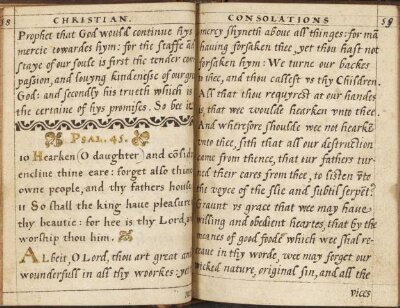 58 CHRISTIAN.
Prophet that God would continue hys
mercie towardes hym: for the staffe ad
staye of our soule is first the tender com
passion, and louyng kindenesse of our gra
God: and secondly his trueth which is
the certaine of hys promises. So bee it
PSAL. 45.
10 Hearken (O daughter) and cõsid
encline thine eare: forget also thin
owne people, and thy fathers house
11 So shall the king haue pleasure
thy beautie: for hee is thy Lord, a
worship thou him.
Albeit, O Lord, thou art great an
wounderfull in all thy woorkes: yet
CONSOLATIONS 59
mercy shyneth aboue all thinges: for mã
hauing forsaken thee, yet thou hast not
forsaken hym: We turne our backes
thee, and thou callest vs thy Children.
All that thou requyrest at our handes
is that wee woulde hearken vnto thee.
And wherefore shoulde wee not hearkẽ
vnto thee, sith that all our destruction
came from thence, that our fathers tur
ned their eares from thee, to listen vnto
the voyce of the slie and subtil serpẽt?
Graunt vs grace that wee may haue
willing and obedient heartes, that by the
meanes of good foode which wee shal re-
ceaue in thy worde, wee may forget our
wicked nature, original sin, and all the
vices